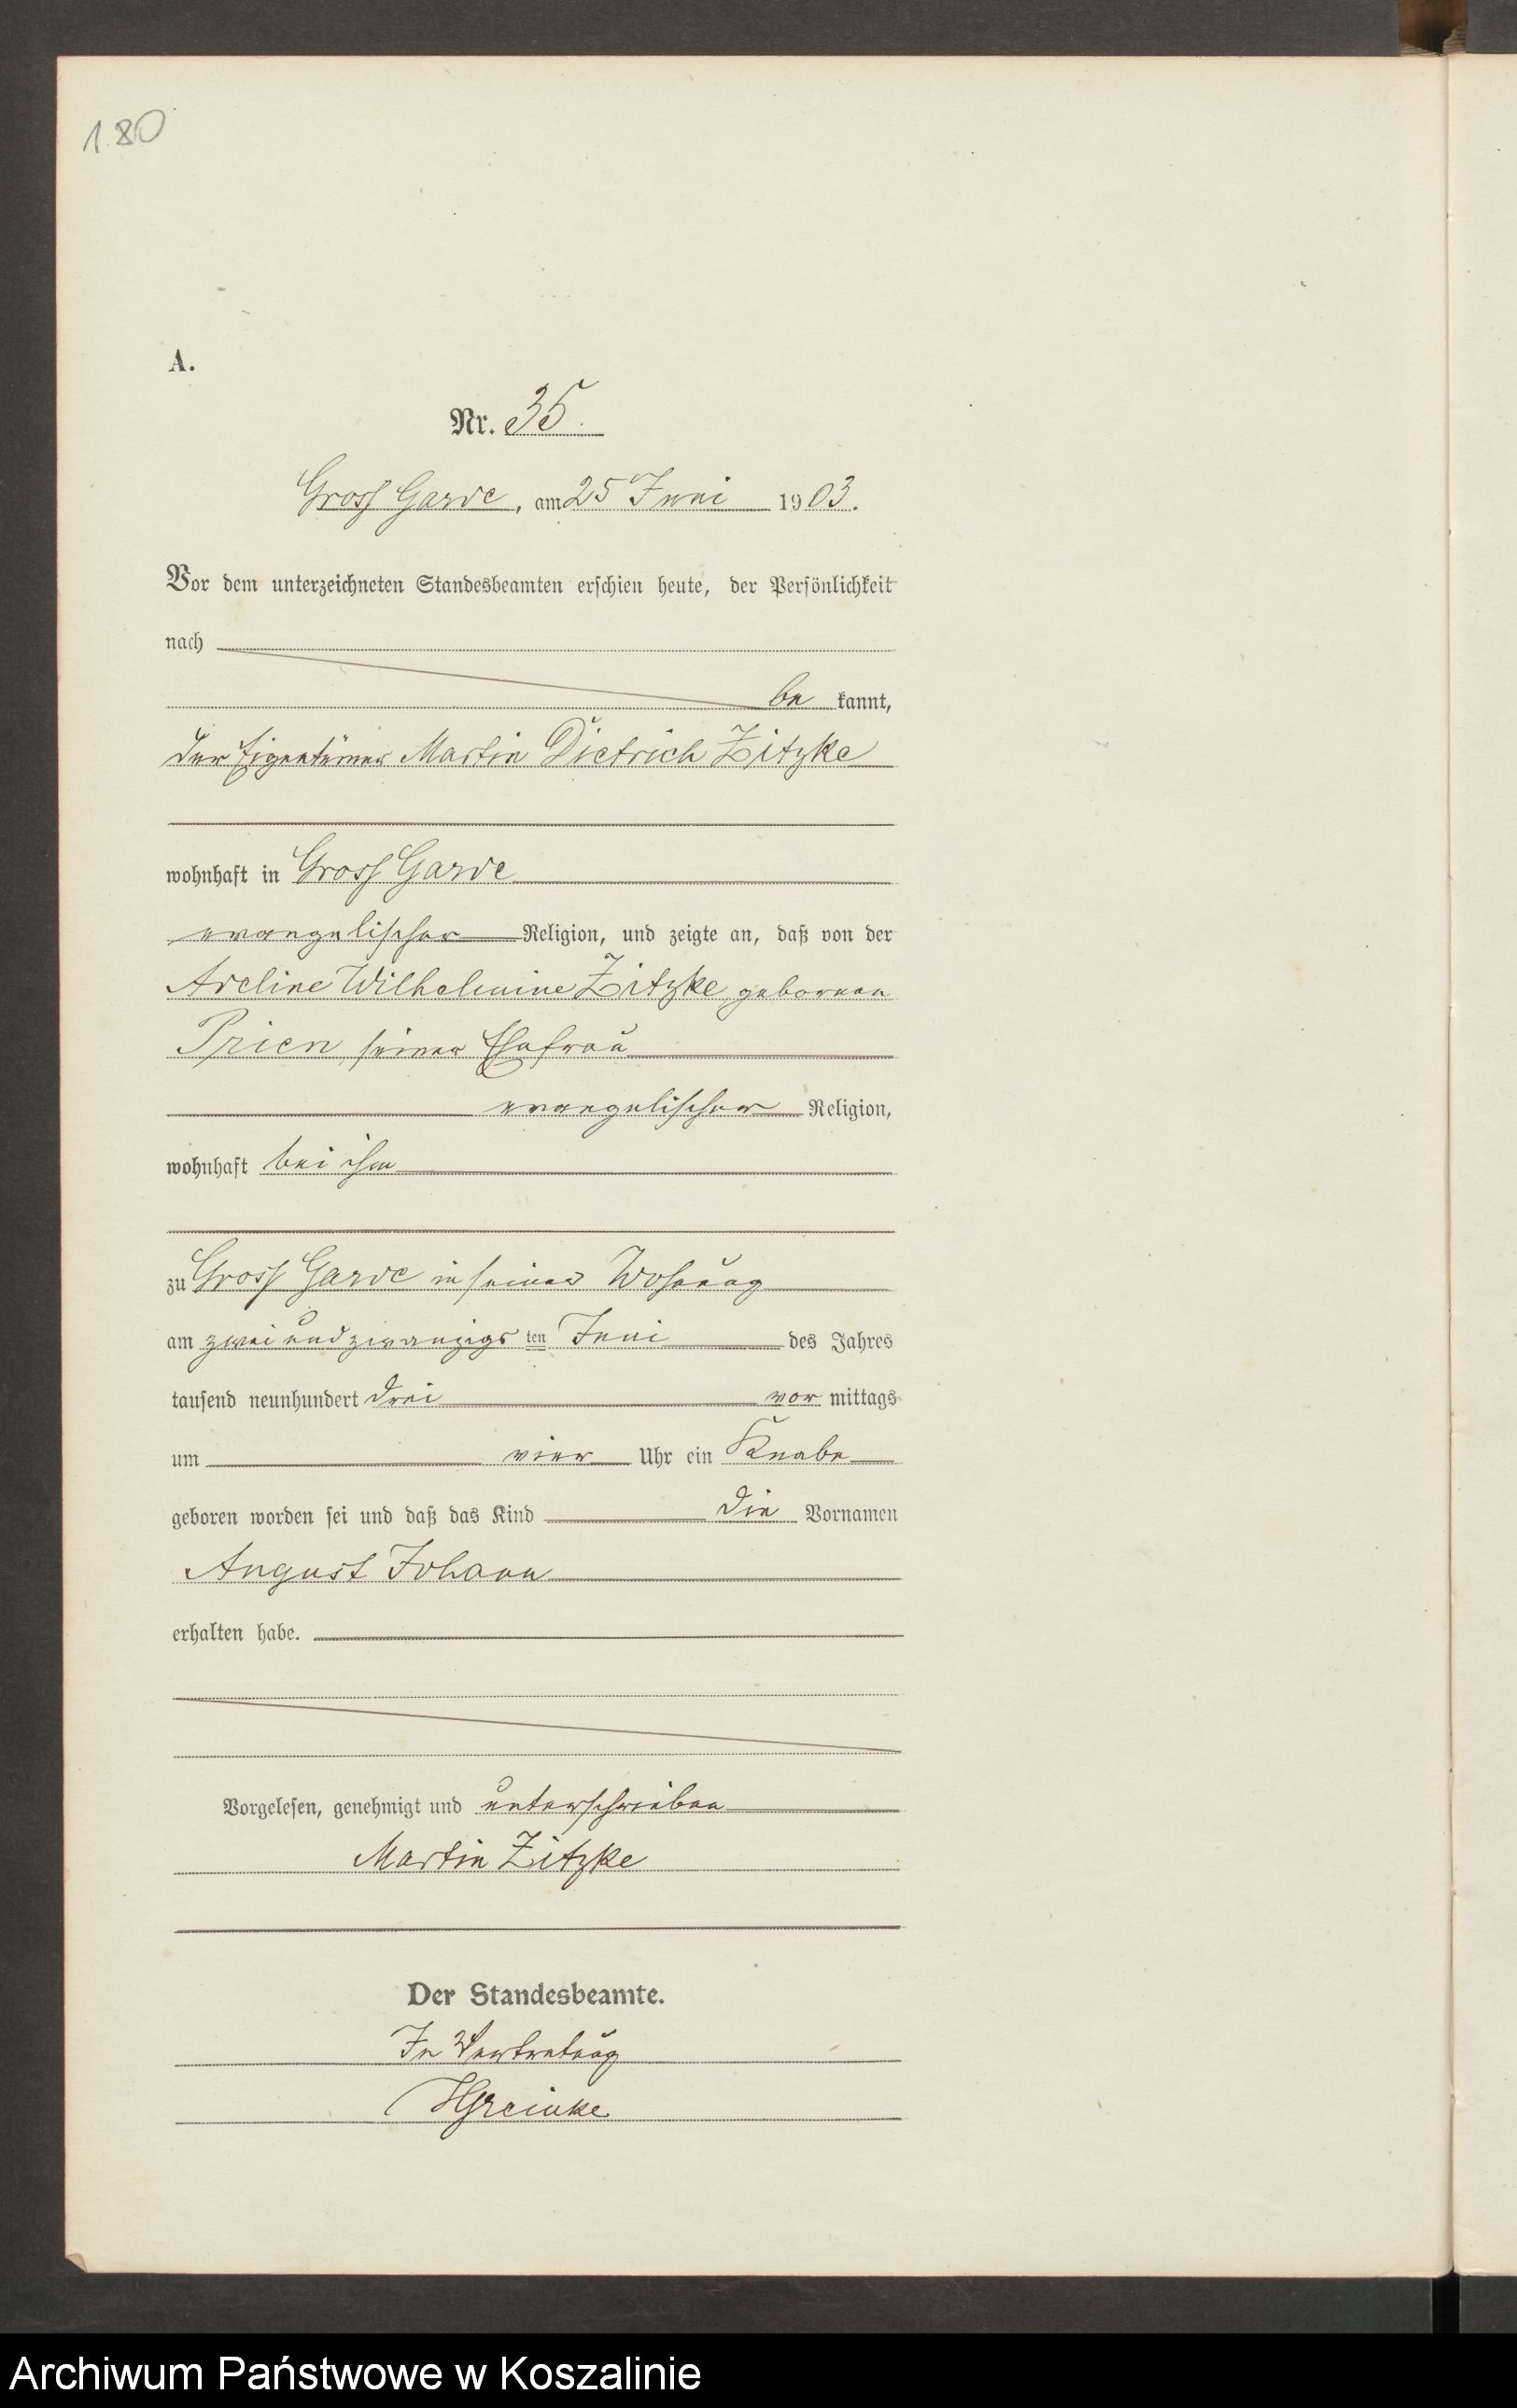 180
A.
Nr. 35.
Gross Garde, am 25 Juni 1903.
Vor dem unterzeichneten Standesbeamten erschien heute, der Persönlichkeit
nach
be kannt,
der Eigentümer Martin Dietrich Zitzke
wohnhaft in Gross Garde
evangelischer Religion, und zeigte an, daß von der
Adeline Wilhelmine Zitzke, geborenen
Prien, seiner Ehefrau
evangelischer Religion,
wohnhaft bei ihm
zu Gross Garde in seiner Wohnung
am zwei und zwanzigs ten Juni des Jahres
tausend neunhundert drei vor mittags
um vier Uhr ein Knabe
geboren worden sei und daß das Kind die Vornamen
August Johann
erhalten habe.
Vorgelesen, genehmigt und unterschrieben
Martin Zitzke
Der Standesbeamte.
In Vertretung
HGreinke
Archiwum Państwowe w Koszalinie